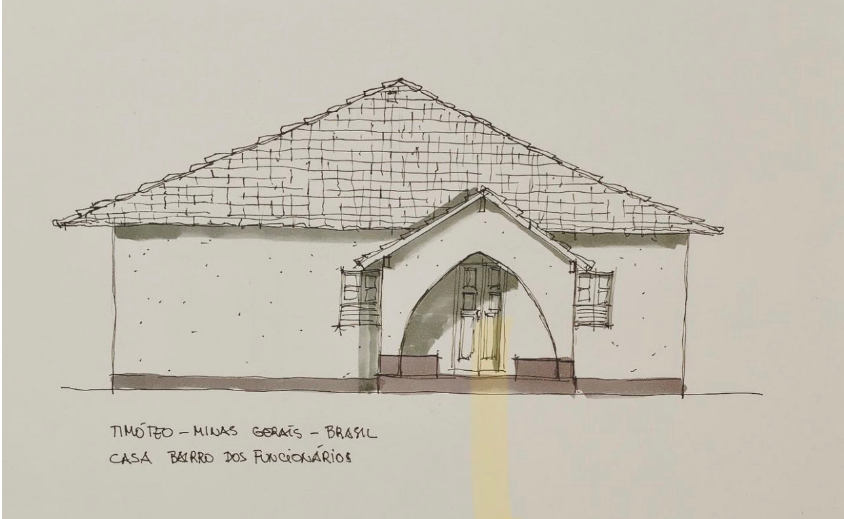 TIMÓTEO – MINAS GERAIS – BRASIL
CASA BAIRRO DOS FUNCIONÁRIOS